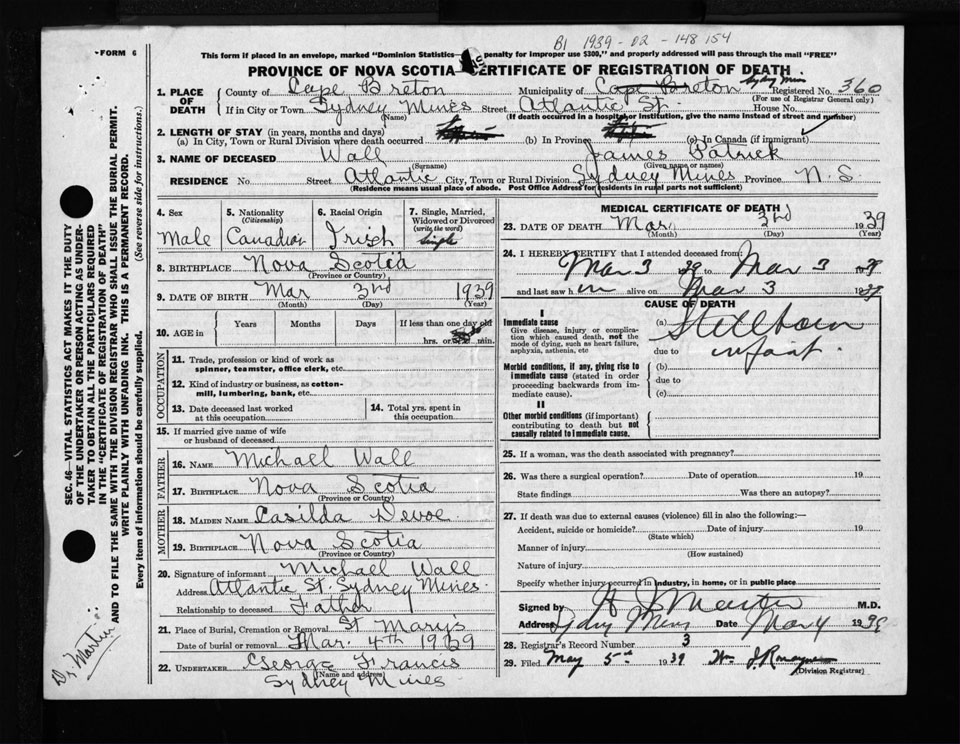 B1 1939 - 02 - 148 154
FORM 6
This form if placed in an envelope, marked "Dominion Statistics penalty for improper use $300," and properly addressed will pass through the mail "FREE"
PROVINCE OF NOVA SCOTIA CERTIFICATE OF REGISTRATION OF DEATH
1. PLACE OF DEATH County of Cape Breton Municipality of Cape Breton Sydney Mines Registered No. 360
(For use of Registrar General only)
If in City or Town Sydney Mines Street Atlantic St. House No.
(Name) (If death occurred in a hospital or institution, give the name instead of street and number)
2. LENGTH OF STAY (in years, months and days)
(a) In City, Town or Rural Division where death occurred (b) In Province (c) In Canada (if immigrant)
3. NAME OF DECEASED Wall James Patrick
(Surname) (Given name or names)
RESIDENCE No. Street Atlantic City, Town or Rural Division Sydney Mines Province N.S.
(Residence means usual place of abode. Post Office Address for residents in rural parts not sufficient)
4. Sex Male
5. Nationality (Citizenship) Canadian
6. Racial Origin Irish
7. Single, Married, Widowed or Divorced (write the word) Single
8. BIRTHPLACE Nova Scotia
(Province or Country)
9. DATE OF BIRTH Mar 3nd 1939
(Month) (Day) (Year)
10. AGE in Years Months Days If less than one day old
hrs. or min.
OCCUPATION
11. Trade, profession or kind of work as spinner, teamster, office clerk, etc.
12. Kind of industry or business, as cotton-mill, lumbering, bank, etc.
13. Date deceased last worked at this occupation
14. Total yrs. spent in this occupation
15. If married give name of wife or husband of deceased
FATHER
16. NAME Michael Wall
17. BIRTHPLACE Nova Scotia
(Province or Country)
MOTHER
18. MAIDEN NAME Casilda Devoe
19. BIRTHPLACE Nova Scotia
(Province or Country)
20. Signature of informant Michael Wall
Address Atlantic St Sydney Mines
Relationship to deceased Father
21. Place of Burial, Cremation or Removal St Mary's
Date of burial or removal Mar. 4th 1939
22. UNDERTAKER George Francis
(Name and address)
Sydney Mines
MEDICAL CERTIFICATE OF DEATH
23. DATE OF DEATH Mar 3nd 1939
(Month) (Day) (Year)
24. I HEREBY CERTIFY that I attended deceased from:
Mar 3 39 to Mar 3 1939
and last saw him alive on Mar 3 1939
CAUSE OF DEATH
I
Immediate cause
Give disease, injury or complication which caused death, not the mode of dying, such as heart failure, asphyxia, asthenia, etc
(a) Stillborn
due to infant.
Morbid conditions, if any, giving rise to immediate cause (stated in order proceeding backwards from immediate cause).
(b)
due to
(c)
II
Other morbid conditions (if important) contributing to death but not causally related to immediate cause.
25. If a woman, was the death associated with pregnancy?
26. Was there a surgical operation? Date of operation 19
State findings Was there an autopsy?
27. If death was due to external causes (violence) fill in also the following:—
Accident, suicide or homicide? Date of injury 19
(State which)
Manner of injury
(How sustained)
Nature of injury
Specify whether injury occurred in industry, in home, or in public place
Signed by M.D.
Address Sydney Mines Date Mar 4 1939
28. Registrar's Record Number 3
29. Filed May 5th 1939 Wm J.
(Division Registrar)
SEC. 46—VITAL STATISTICS ACT MAKES IT THE DUTY
OF THE UNDERTAKER OR PERSON ACTING AS UNDER-
TAKER TO OBTAIN ALL THE PARTICULARS REQUIRED
IN THE "CERTIFICATE OF REGISTRATION OF DEATH"
AND TO FILE THE SAME WITH THE DIVISION REGISTRAR WHO SHALL ISSUE THE BURIAL PERMIT.
WRITE PLAINLY WITH UNFADING INK. THIS IS A PERMANENT RECORD.
Every item of information should be carefully supplied. (See reverse side for instructions.)
Dr Martin